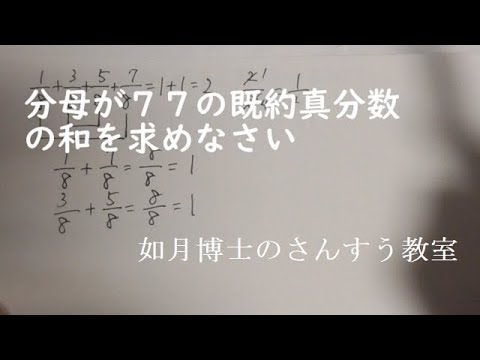 1/8 + 3/8 + 5/8 + 7/8 = 1 + 1 = 2
分母が77の既約真分数
の和を求めなさい
1/8 + 1/8 = 8/8 = 1
3/8 + 5/8 = 8/8 = 1
如月博士のさんすう教室